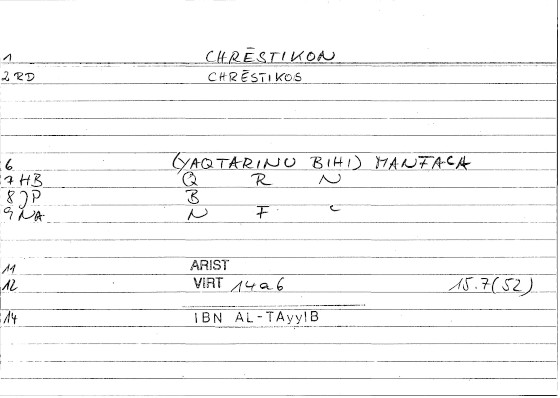 1 CHRĒSTIKON
2 RD CHRĒSTIKOS
6 (YAQTARINU BIHI) MANFAʿA
7 HB Q R N
8 JP B
9 NA N F ʿ
11 ARIST
12 VIRT 14a6 15.7(52)
14 IBN AL-TAyyIB